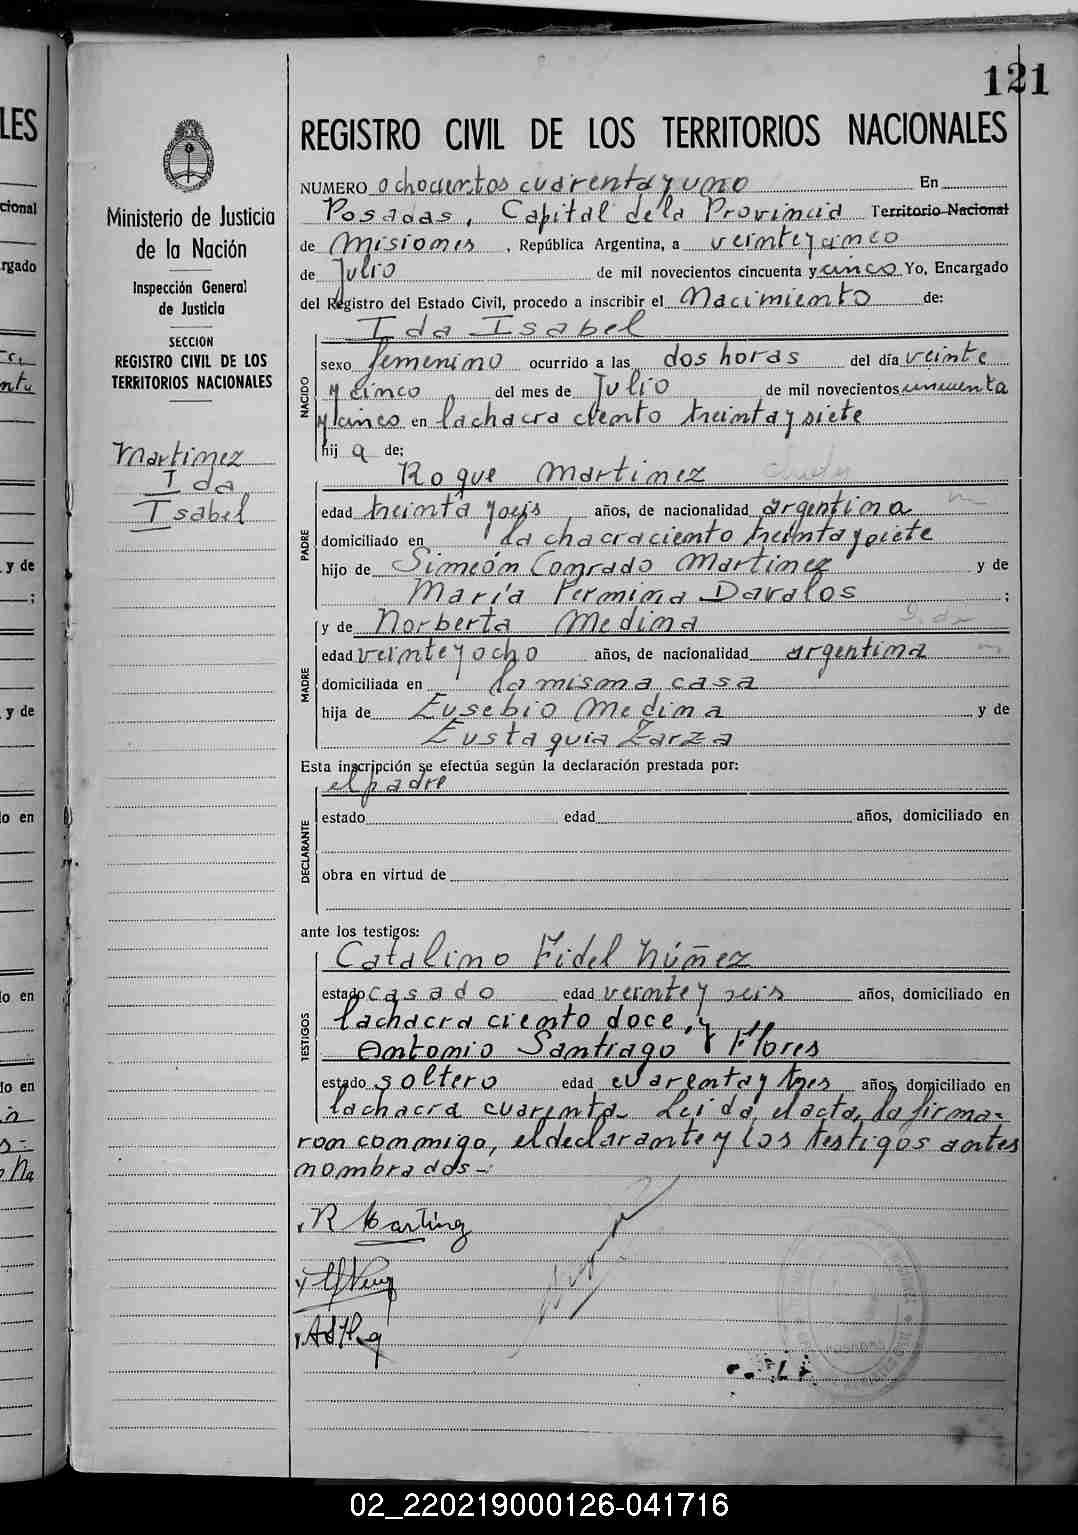 121
REGISTRO CIVIL DE LOS TERRITORIOS NACIONALES
Ministerio de Justicia
de la Nación
Inspección General
de Justicia
SECCION
REGISTRO CIVIL DE LOS
TERRITORIOS NACIONALES
Martinez
Ida
Isabel
NUMERO ochocientos cuarenta y uno En
Posadas, Capital de la Provincia Territorio Nacional
de Misiones, República Argentina, a veinte y cinco
de Julio de mil novecientos cincuenta y cinco Yo, Encargado
del Registro del Estado Civil, procedo a inscribir el Nacimiento de:
Ida Isabel
NACIDO
sexo femenino ocurrido a las dos horas del día veinte
y cinco del mes de Julio de mil novecientos cincuenta
y cinco en la chacra ciento treinta y siete
hij a de:
Roque Martinez
PADRE
edad treinta y seis años, de nacionalidad argentina
domiciliado en la chacra ciento treinta y siete
hijo de Simeón Conrado Martinez y de
María Fermina Davalos ;
y de Norberta Medina
MADRE
edad veinte y ocho años, de nacionalidad argentina
domiciliada en la misma casa
hija de Eusebio Medina y de
Eustaquia Zarza
Esta inscripción se efectúa según la declaración prestada por:
el padre
DECLARANTE
estado edad años, domiciliado en
obra en virtud de
ante los testigos:
Catalino Fidel Núñez
TESTIGOS
estado casado edad veinte y seis años, domiciliado en
la chacra ciento doce, y
Antonio Santiago Flores
estado soltero edad cuarenta y tres años, domiciliado en
la chacra cuarenta- Leida el acta, la firma=
ron conmigo, el declarante y los testigos antes
nombrados-
R Martinez
02_220219000126-041716